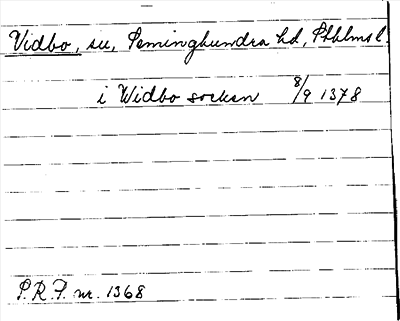 Vidbo, su, Seminghundra hd, Sthlms l.
i Widbo socken 8/9 1378
S.R.P. nr. 1368